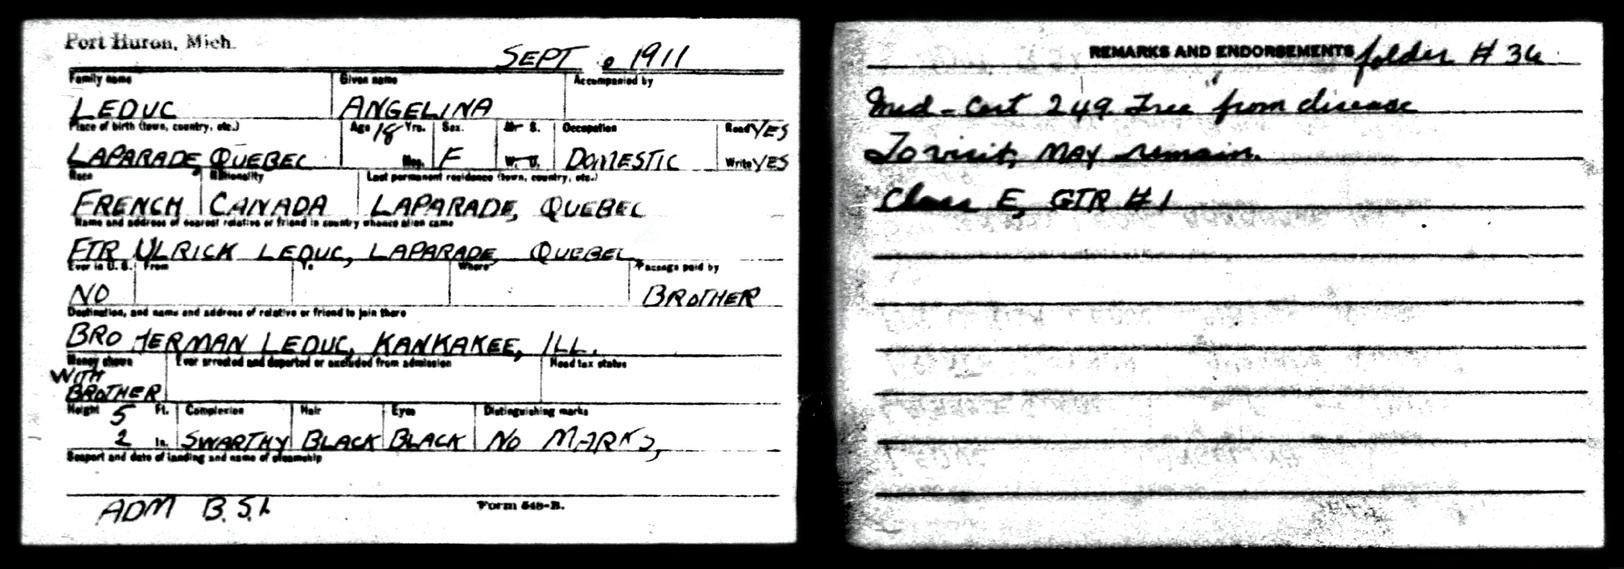 Port Huron, Mich.
SEPT 1911
Family name Given name Accompanied by
LEDUC ANGELINA
Place of birth (town, country, etc.) Age 18 Yrs. Sex. M S. Occupation Read YES
LAPARADE, QUEBEC Mos. F W. D. DOMESTIC Write YES
Race Nationality Last permanent residence (town, country, etc.)
FRENCH CANADA LAPARADE, QUEBEC
Name and address of nearest relative or friend in country whence alien came
FTR ULRICK LEDUC, LAPARADE, QUEBEC,
Ever in U. S. From To Where Passage paid by
NO BROTHER
Destination, and name and address of relative or friend to join there
BRO HERMAN LEDUC, KANKAKEE, ILL.
Money shown Ever arrested and deported or excluded from admission Head tax status
WITH
BROTHER
Height 5 Ft. Complexion Hair Eyes Distinguishing marks
2 In. SWARTHY BLACK BLACK NO MARKS,
Seaport and date of landing and name of steamship
ADM B.S.I. Form 548-B.
REMARKS AND ENDORSEMENTS folder # 36
Med-Cert 249. Free from disease
To visit, MAY remain.
Class E, GTR #1